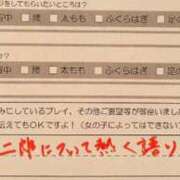 をしてもらいたいところは？
背中 ｜ 腰 ｜ 太もも ｜ ふくらはぎ ｜ 足
中 ｜ 腰 ｜ 太もも ｜ ふくらはぎ ｜
みにしているプレイ、その他ご要望等が御座いまし
伝えてもOKです♪（女の子によってはできない
二郎について熱く語り